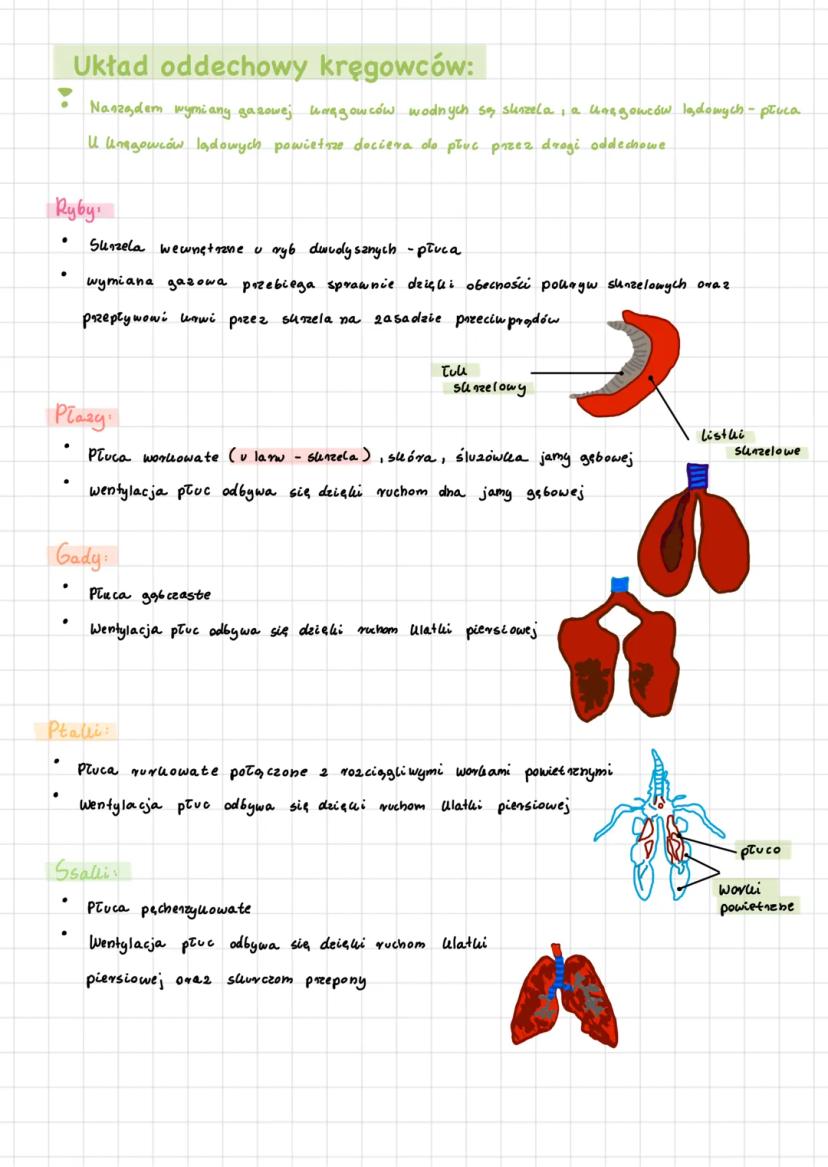 Układ oddechowy kręgowców:
• Narządem wymiany gazowej kręgowców wodnych są skrzela, a kręgowców lądowych - płuca
U kręgowców lądowych powietrze dociera do płuc przez drogi oddechowe
Ryby:
• Skrzela wewnętrzne u ryb dwudysznych - płuca
• wymiana gazowa przebiega sprawnie dzięki obecności pokryw skrzelowych oraz
przepływowi krwi przez skrzela na zasadzie przeciwprądów
Łuk
skrzelowy
Listki
skrzelowe
Płazy:
• Płuca workowate (u larw - skrzela), skóra, śluzówka jamy gębowej
• wentylacja płuc odbywa się dzięki ruchom dna jamy gębowej
Gady:
• Płuca gąbczaste
• Wentylacja płuc odbywa się dzięki ruchom klatki piersiowej
Ptaki:
• Płuca rurkowate połączone z rozciągliwymi workami powietrznymi
• Wentylacja płuc odbywa się dzięki ruchom klatki piersiowej
płuco
Worki
powietrzne
Ssaki:
• Płuca pęcherzykowate
• Wentylacja płuc odbywa się dzięki ruchom klatki
piersiowej oraz skurczom przepony